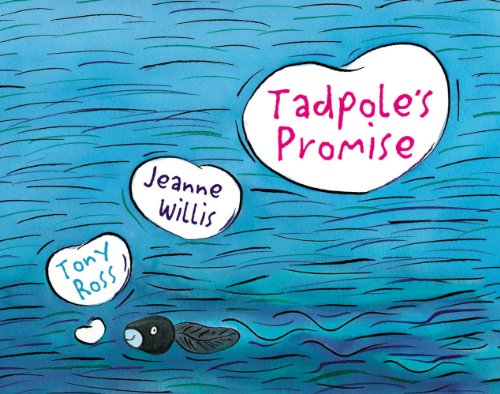 Tadpole's
Promise
Jeanne
Willis
Tony
Ross